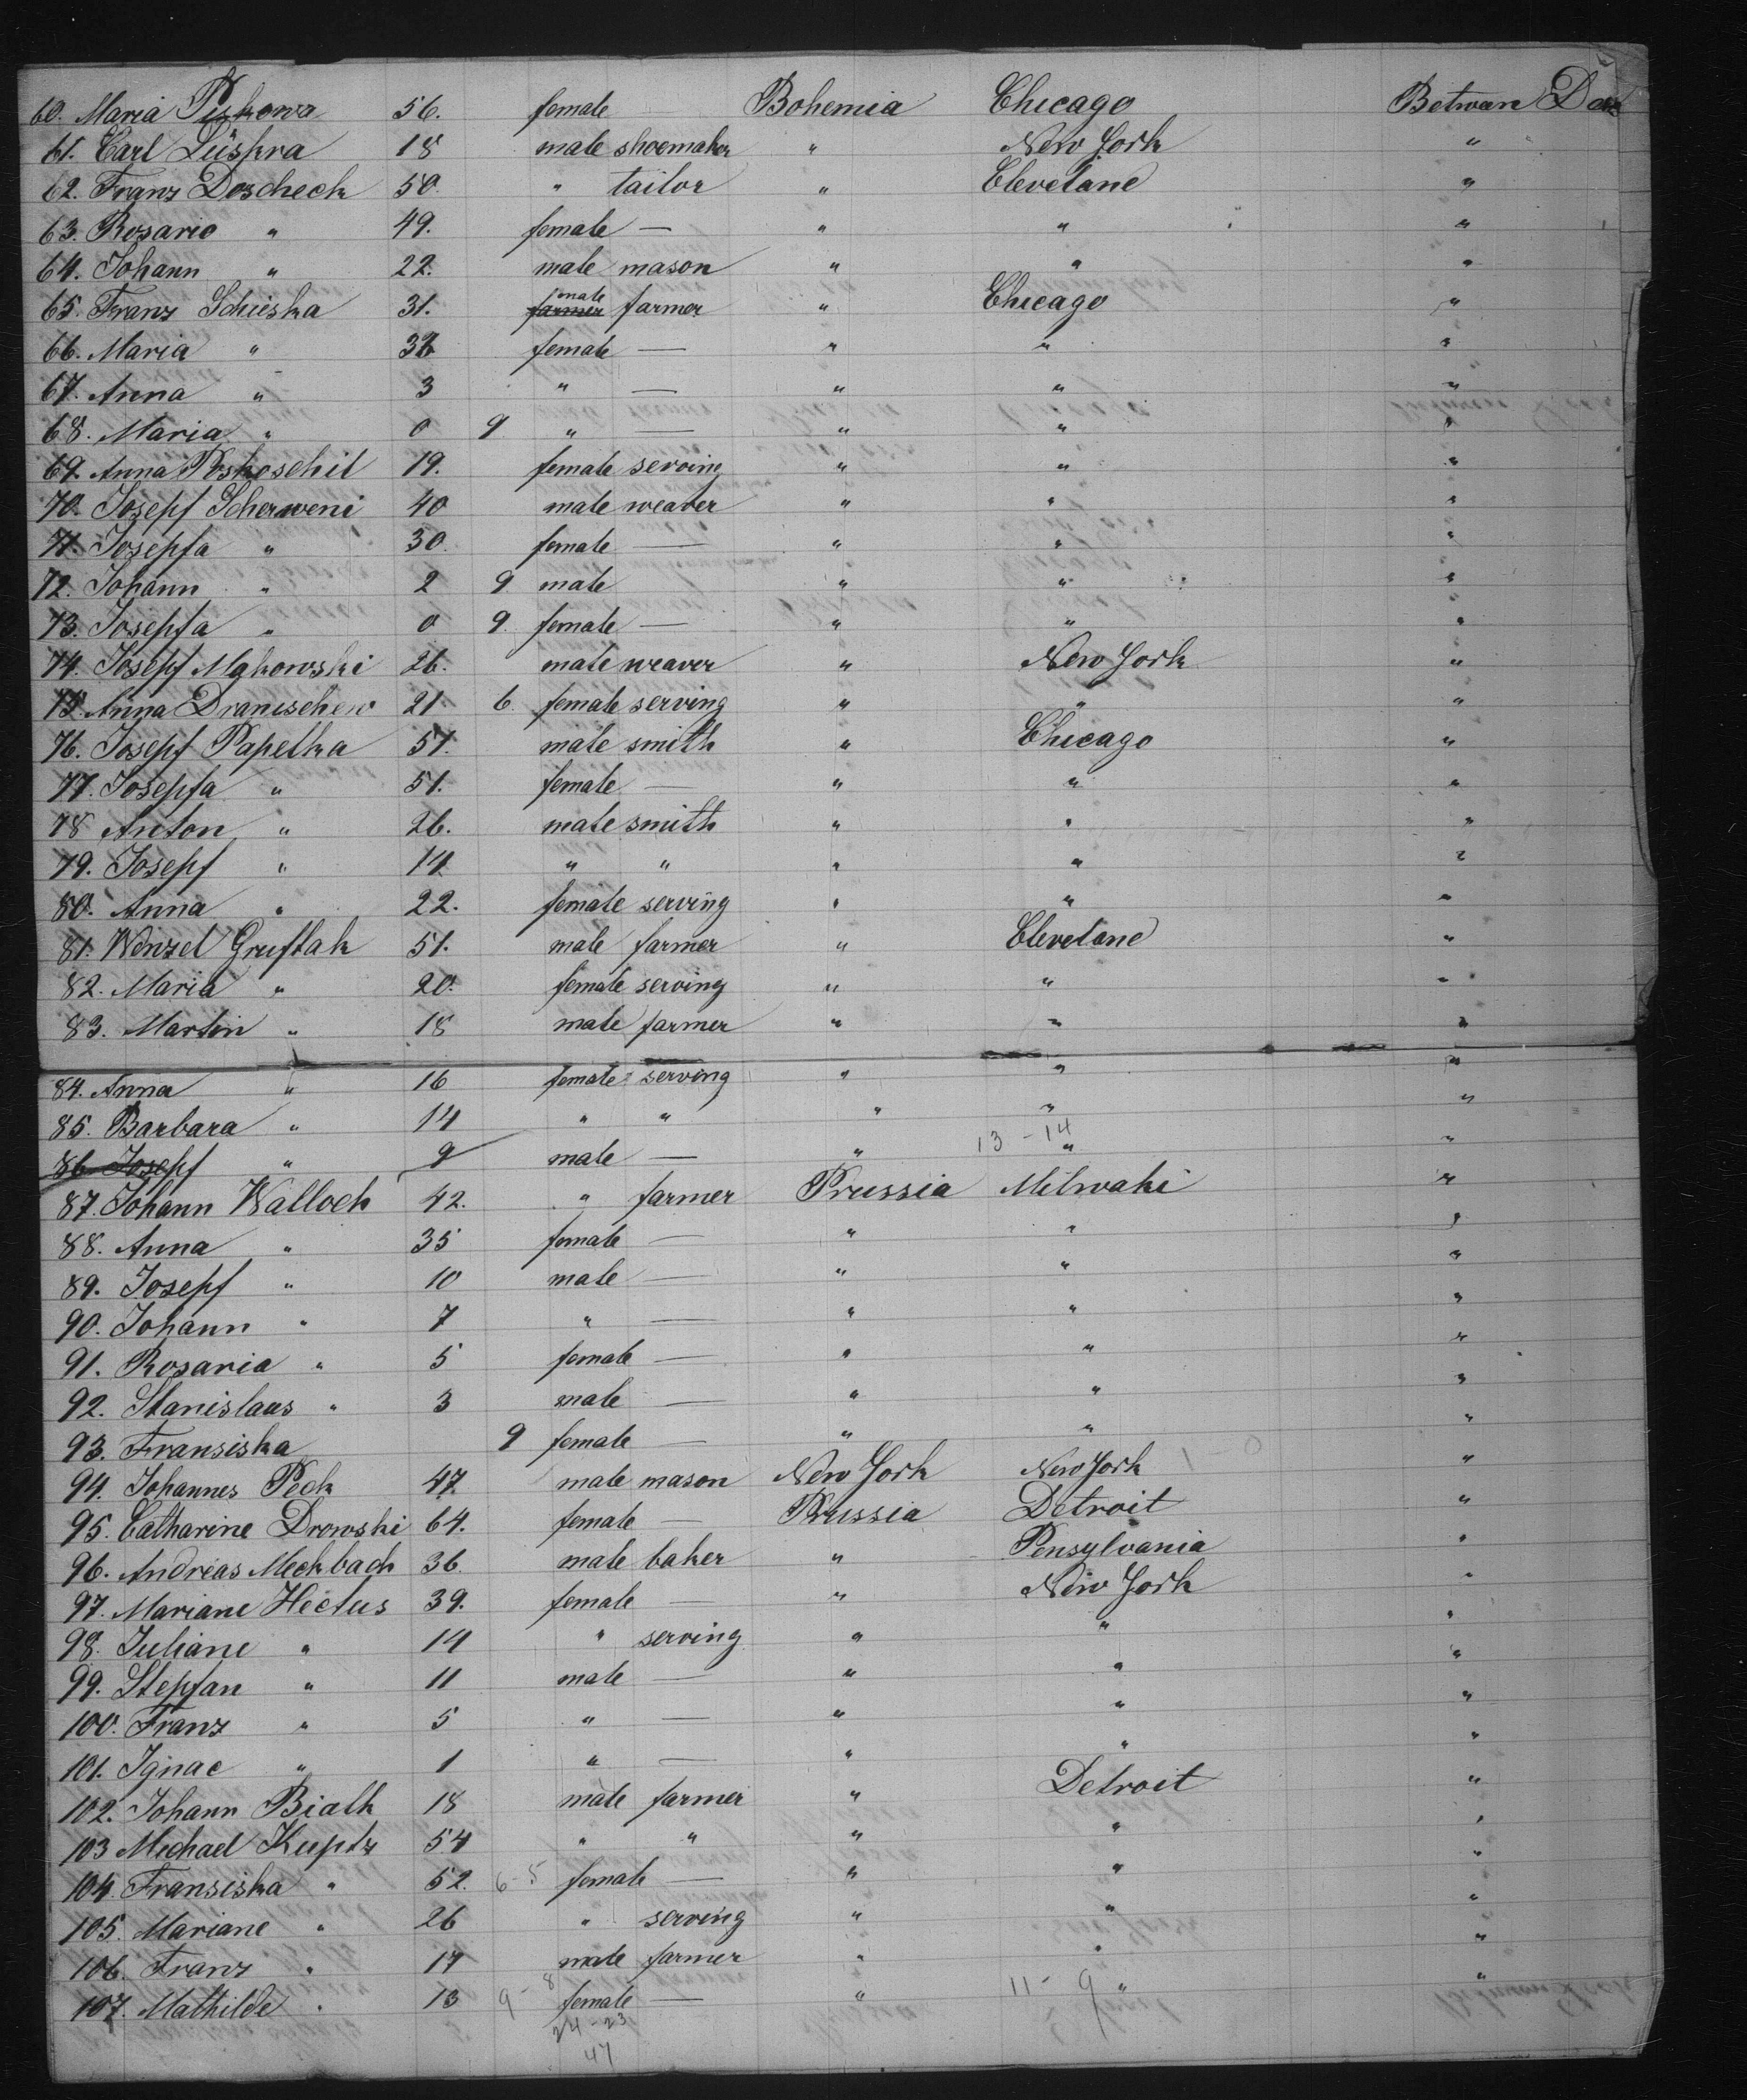 60. Maria Pukowa 56. female Bohemia Chicago Betwan Deck
61. Carl Lüskra 18 male shoemaker " New York "
62. Franz Doscheck 50. " tailor " Clevelane "
63. Rosario " 49. female — " " "
64. Johann " 22. male mason " " "
65. Franz Schieska 31. farmer male farmer " Chicago "
66. Maria " 32 female — " " "
67. Anna " 3 " — " " "
68. Maria " 0 9 " — " " "
69. Anna Poskoschil 19. female serving " " "
70. Josepf Scherweni 40 male weaver " " "
71. Josepfa " 30. female — " " "
72. Johann " 2 9 male " " "
73. Josepfa " 0 9. female — " " "
74. Josepf Makowski 26. male weaver " New York "
75. Anna Dranischew 21 6. female serving " " "
76. Josepf Papetka 51. male smith " Chicago "
77. Josepfa " 51. female — " " "
78 Anton " 26. male smith " " "
79. Josepf " 14 " " " " "
80. Anna " 22. female serving " " "
81. Wenzel Gruftak 51. male farmer " Clevelane "
82. Maria " 20. female serving " " "
83. Martin " 18 male farmer " " "
84. Anna " 16 female serving " " "
85. Barbara " 14 " " " " "
13 - 14
86 Josepf " 9 male — " " "
87. Johann Walloch 42. " farmer Prussia Milwaki "
88. Anna " 35 female — " " "
89. Josepf " 10 male — " " "
90. Johann " 7 " — " " "
91. Rosaria " 5 female — " " "
92. Stanislaus " 3 male — " " "
93. Fransiska 9 female — " " "
94. Johannes Peck 47. male mason New York New York 1 - 0 "
95. Catharine Drowski 64. female — Prussia Detroit "
96. Andreas Mechbach 36. male baker " Pensylvania "
97. Mariane Hectus 39. female — " New York "
98. Juliane " 14 " serving " " "
99. Stepfan " 11 male — " " "
100. Franz " 5 " — " " "
101. Ignac " 1 " — " " "
102. Johann Bialk 18 male farmer " Detroit "
103 Michael Kuptz 54 " " " " "
104. Fransiska " 52. 6 - 5 female — " " "
105. Mariane " 26 " serving " " "
106. Franz " 17 male farmer " " "
107. Mathilde " 13 9 - 8 female — " 11 - 9 " "
24 - 23
47